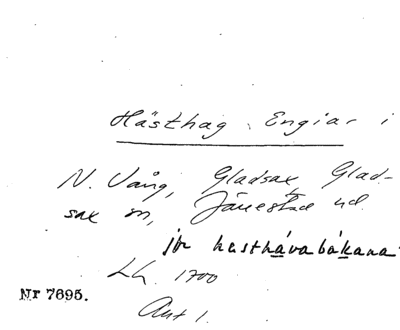 Hästhag. Engiar i
N. Vång, Gladsax, Glad-
sax sn, Järrestad hd.
jfr hasthávabákana
Lh. 1700
Akt 1.
Nr 7695.